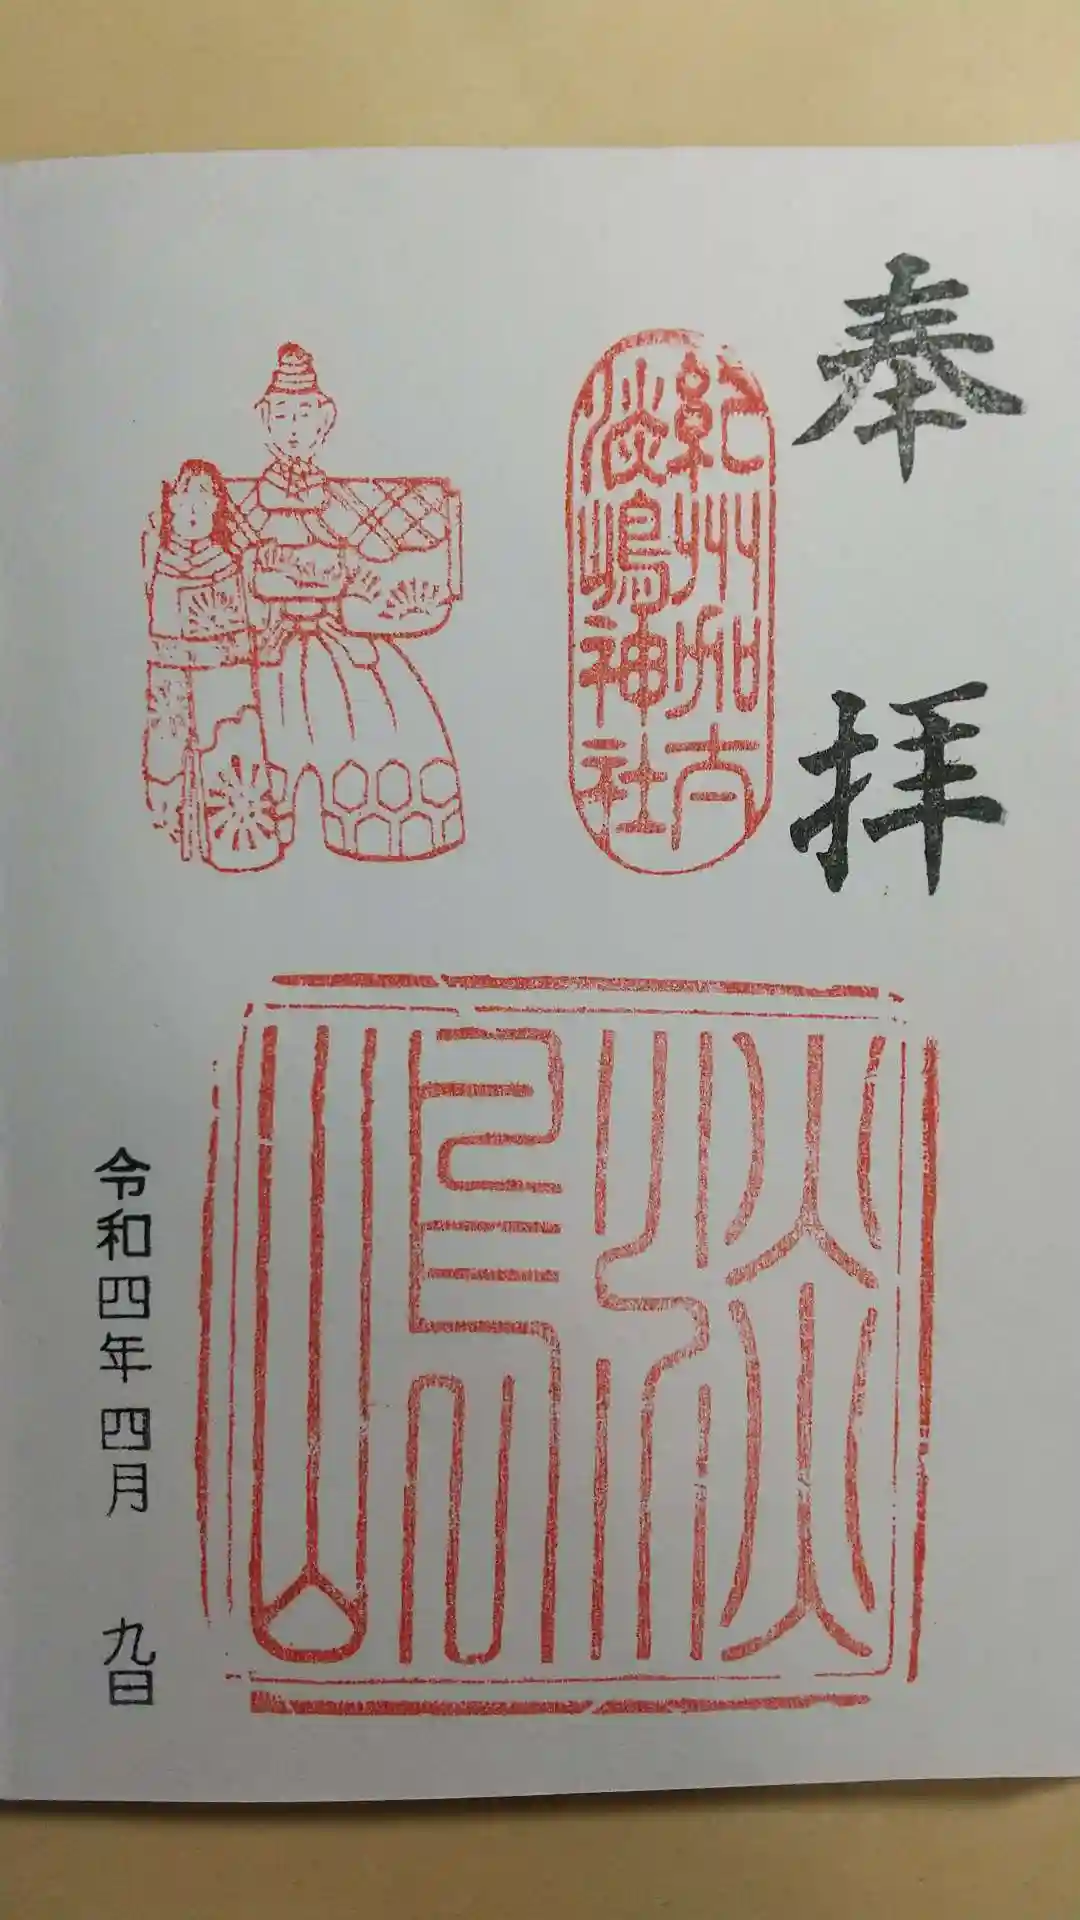 奉拝
紀州加太
淡嶋神社
淡嶋
令和四年四月九日